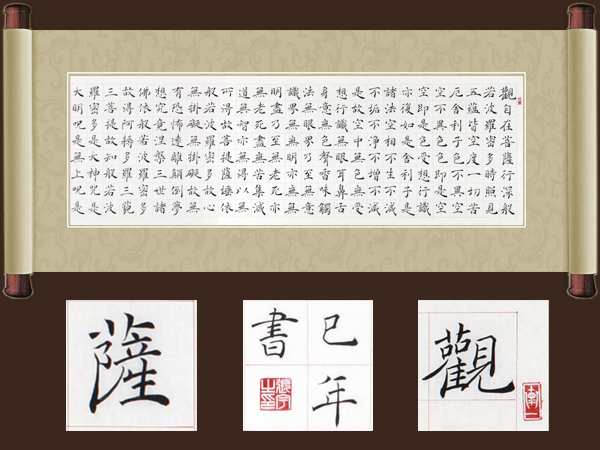 觀自在菩薩行深般
若波羅密多時照見
五蘊皆空度一切苦
厄舍利子色不異空
空不異色色即是空
空即是色受想行識
亦復如是舍利子是
諸法空相不生不滅
不垢不淨不增不減
是故空中無色無受
想行識無眼耳鼻舌
身意無色聲香味觸
法無眼界乃至無意
識界無無明亦無無
明盡乃至無老死亦
無老死盡無苦集滅
道無智亦無得以無
所得故菩提薩埵依
般若波羅密多故心
無掛礙無掛礙故無
有恐怖遠離顛倒夢
想究竟涅槃三世諸
佛依般若波羅密多
故得阿耨多羅三藐
三菩提故知般若波
羅密多是大神呪是
大明呪是無上呪是
薩
己年
書
觀